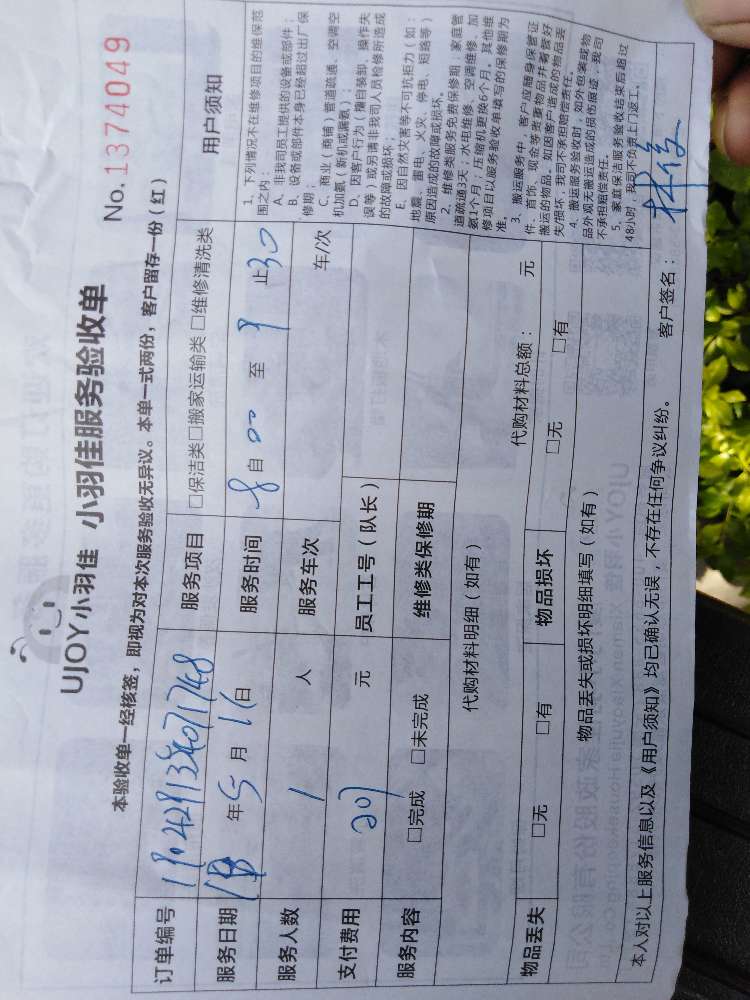 UJOY小羽佳 小羽佳服务验收单
No.1374049
本验收单一经核签，即视为对本次服务验收无异议。本单一式两份，客户留存一份（红）
订单编号
服务项目 □保洁类□搬家运输类 □维修清洗类
服务日期 18 年 5 月 16 日
服务时间 8 自 00 至 9 止 30
服务人数 1 人
服务车次 车/次
支付费用 元
员工工号（队长）
服务内容 □完成 □未完成
维修类保修期
代购材料明细（如有） 代购材料总额： 元
物品丢失 □无 □有 物品损坏 □无 □有
物品丢失或损坏明细填写（如有）
用户须知
1、下列情况不在维修项目的维保范
围之内：
A、非我司员工提供的设备或部件；
B、设备或部件本身已经超过出厂保
修期；
C、商业（商铺）管道疏通、空调空
机加氨（新机或漏氨）；
D、因客户行为（擅自装卸、操作失
误等）或另请非我司人员检修所造成
的故障或损坏；
E、因自然灾害等不可抗拒力（如：
地震、雷电、火灾、停电、短路等）
原因造成的故障或损坏。
2、维修类服务免费保修期：家庭管
道疏通3天；水电维修、空调维修、加
氨1个月；压缩机更换6个月。其他维
修项目以服务验收单填写的保修期为
准。
3、搬运服务中，客户应随身保管证
件、首饰、现金等贵重物品并看管好
搬运的物品。如因客户造成的物品丢
失损坏；我司不承担赔偿责任。
4、搬运服务验收时，如外包装或物
品外观无搬运造成的损伤痕迹，我司
不承担赔偿责任。
5、家庭保洁服务验收结束后超过
48小时，我司不负责上门返工。
本人对以上服务信息以及《用户须知》均已确认无误，不存在任何争议纠纷。 客户签名：